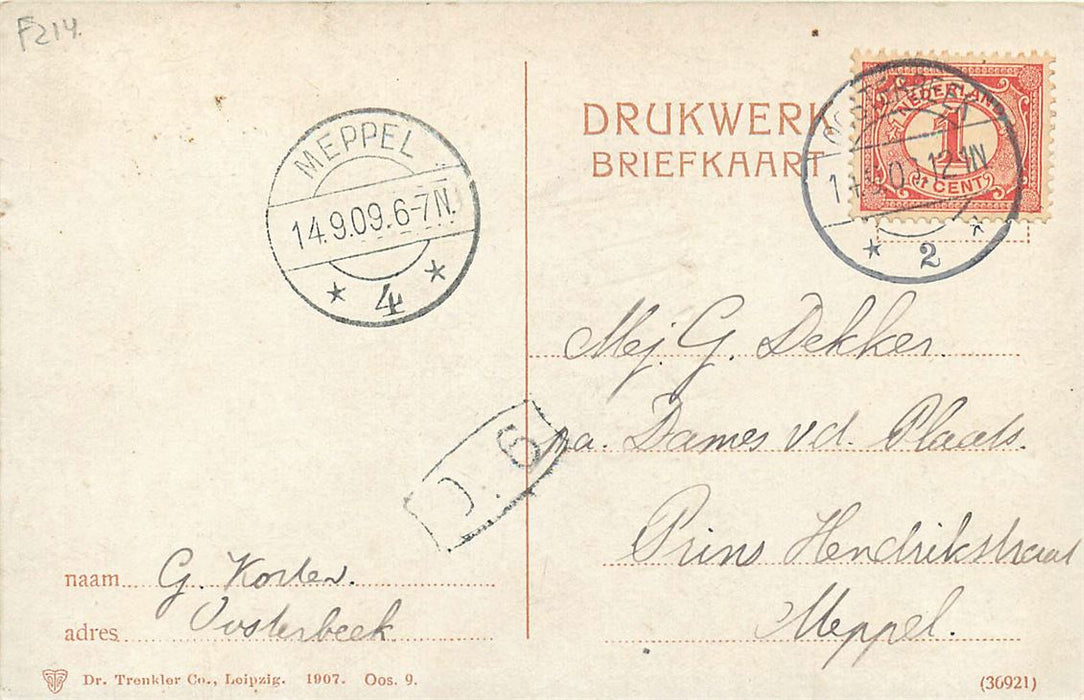 F214.
MEPPEL
14.9.09.6-7N.
4
DRUKWERK
BRIEFKAART
NEDERLAND
1
CENT
OOSTERBEEK
12-1N
2
Mej. G. Dekker.
pa. Dames v.d. Plaats.
Prins Hendrikstraat
Meppel.
naam G. Korten.
adres Oosterbeek
Dr. Trenkler Co., Leipzig. 1907. Oos. 9.
(36921)